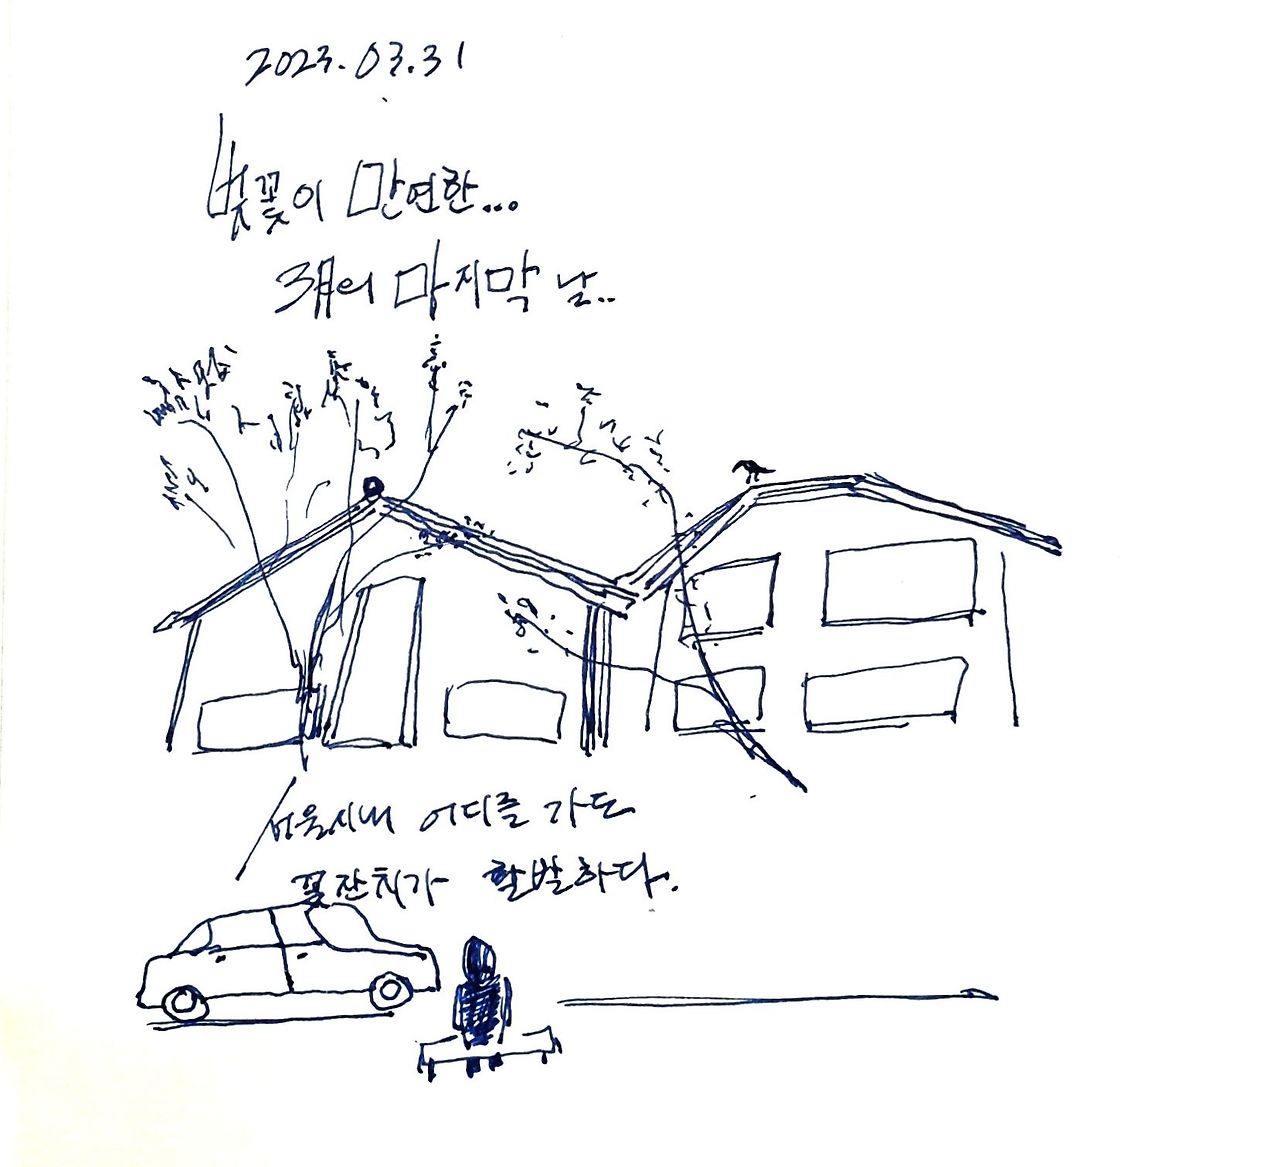 2023.03.31
벚꽃이 만연한...
3月의 마지막 날..
서울시내 어디를 가도
꽃잔치가 활발하다.